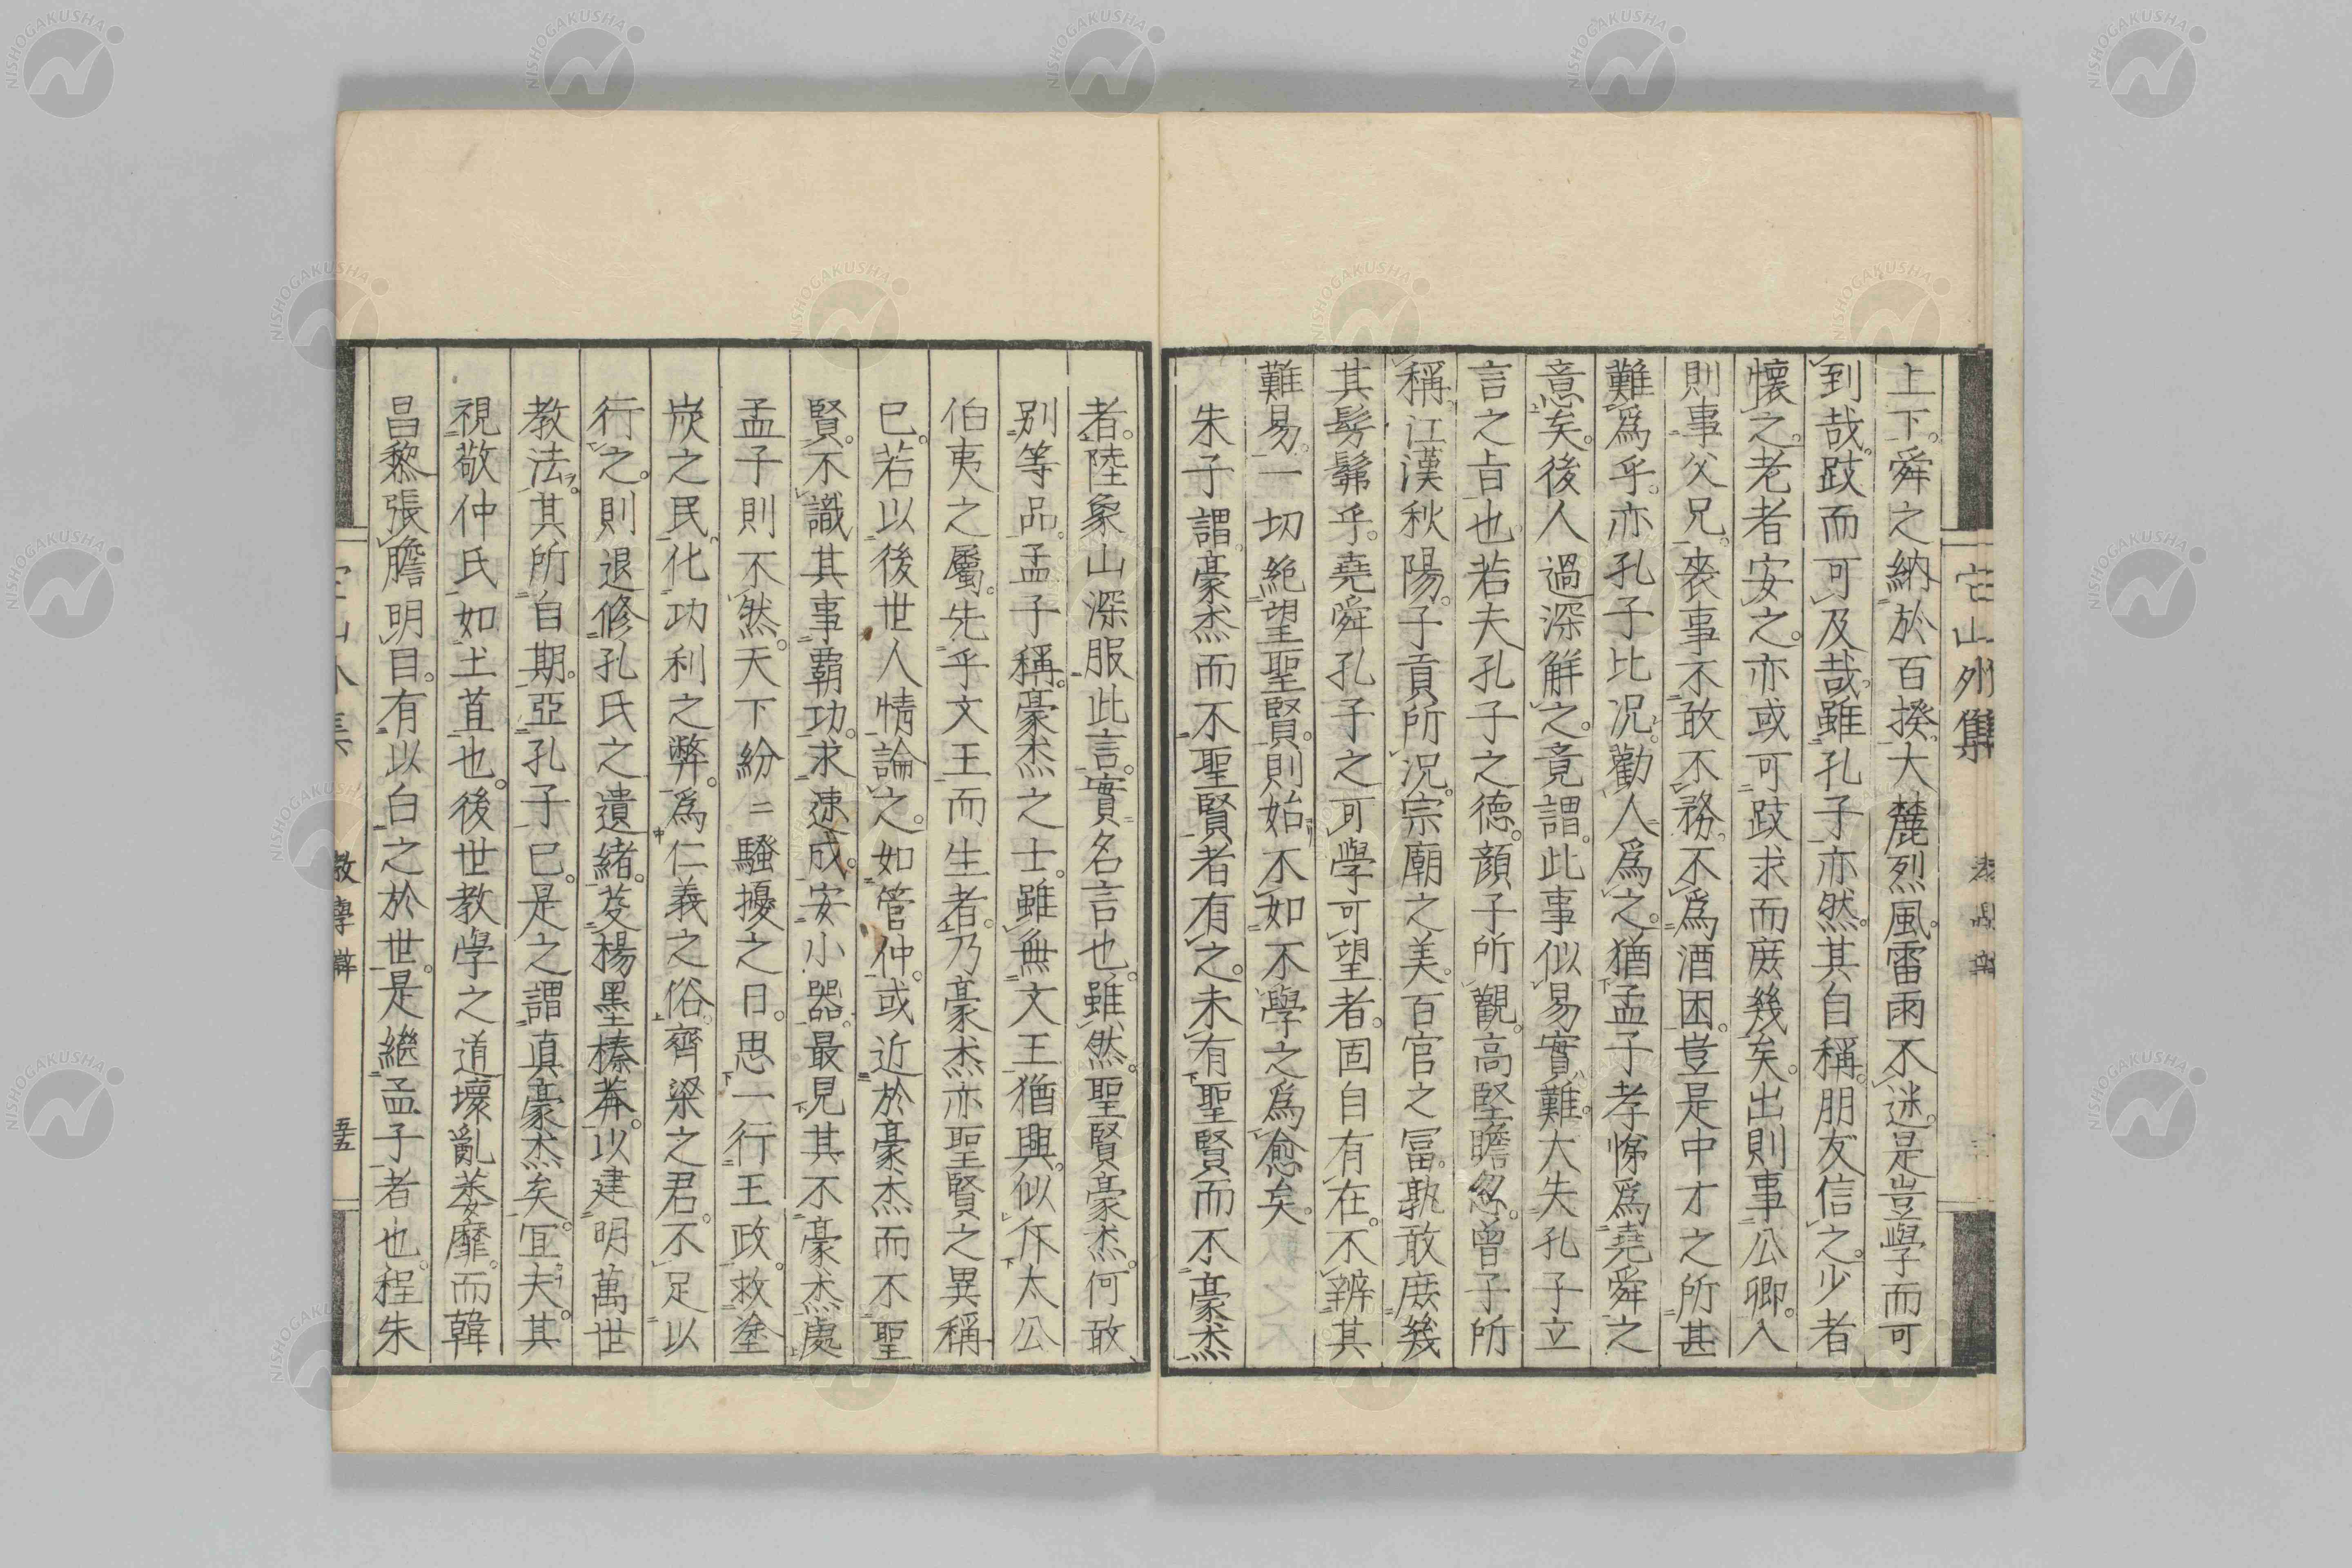 上下。舜之納於百揆。大麓烈風。雷雨不迷。是豈學而可
到哉。跂而可及哉。雖孔子亦然。其自稱。朋友信之。少者
懷之。老者安之。亦或可跂求而庶幾矣。出則事公卿。入
則事父兄。喪事不敢不務。不爲酒困。豈是中才之所甚
難爲乎。亦孔子比况。勸人爲之。猶孟子孝悌爲堯舜之
意矣。後人過深解之。竟謂。此事似易實難。大失孔子立
言之旨也。若夫孔子之德。顏子所觀。高堅瞻忽。曾子所
稱。江漢秋陽。子貢所况。宗廟之美。百官之冨。孰敢庶幾
其髣髴乎。堯舜孔子之可學可望者。固自有在。不辨其
難易。一切絶望聖賢。則始不如不學之爲愈矣。
朱子謂。豪杰而不聖賢者有之。未有聖賢而不豪杰
者。陸象山深服此言。實名言也。雖然。聖賢豪杰。何敢
別等品。孟子稱。豪杰之士。雖無文王猶興。似斥太公
伯夷之屬。先乎文王而生者。乃豪杰亦聖賢之異稱
已。若以後世人情論之。如管仲。或近於豪杰而不聖
賢。不識其事霸功。求速成。安小器。最見其不豪杰處
孟子則不然。天下紛〻騷擾之日。思一行王政。救塗
炭之民。化功利之弊。爲仁義之俗。齊梁之君。不足以
行之。則退修孔氏之遺緒。芟楊墨榛莽。以建明萬世
教法。其所自期。亞孔子已。是之謂眞豪杰矣。冝夫。其
視敬仲氏。如土苴也。後世教學之道。壞亂萎靡。而韓
昌黎張膽明目。有以白之於世。是繼孟子者也。程朱
它山外集
教學辯
五
NISHOGAKUSHA